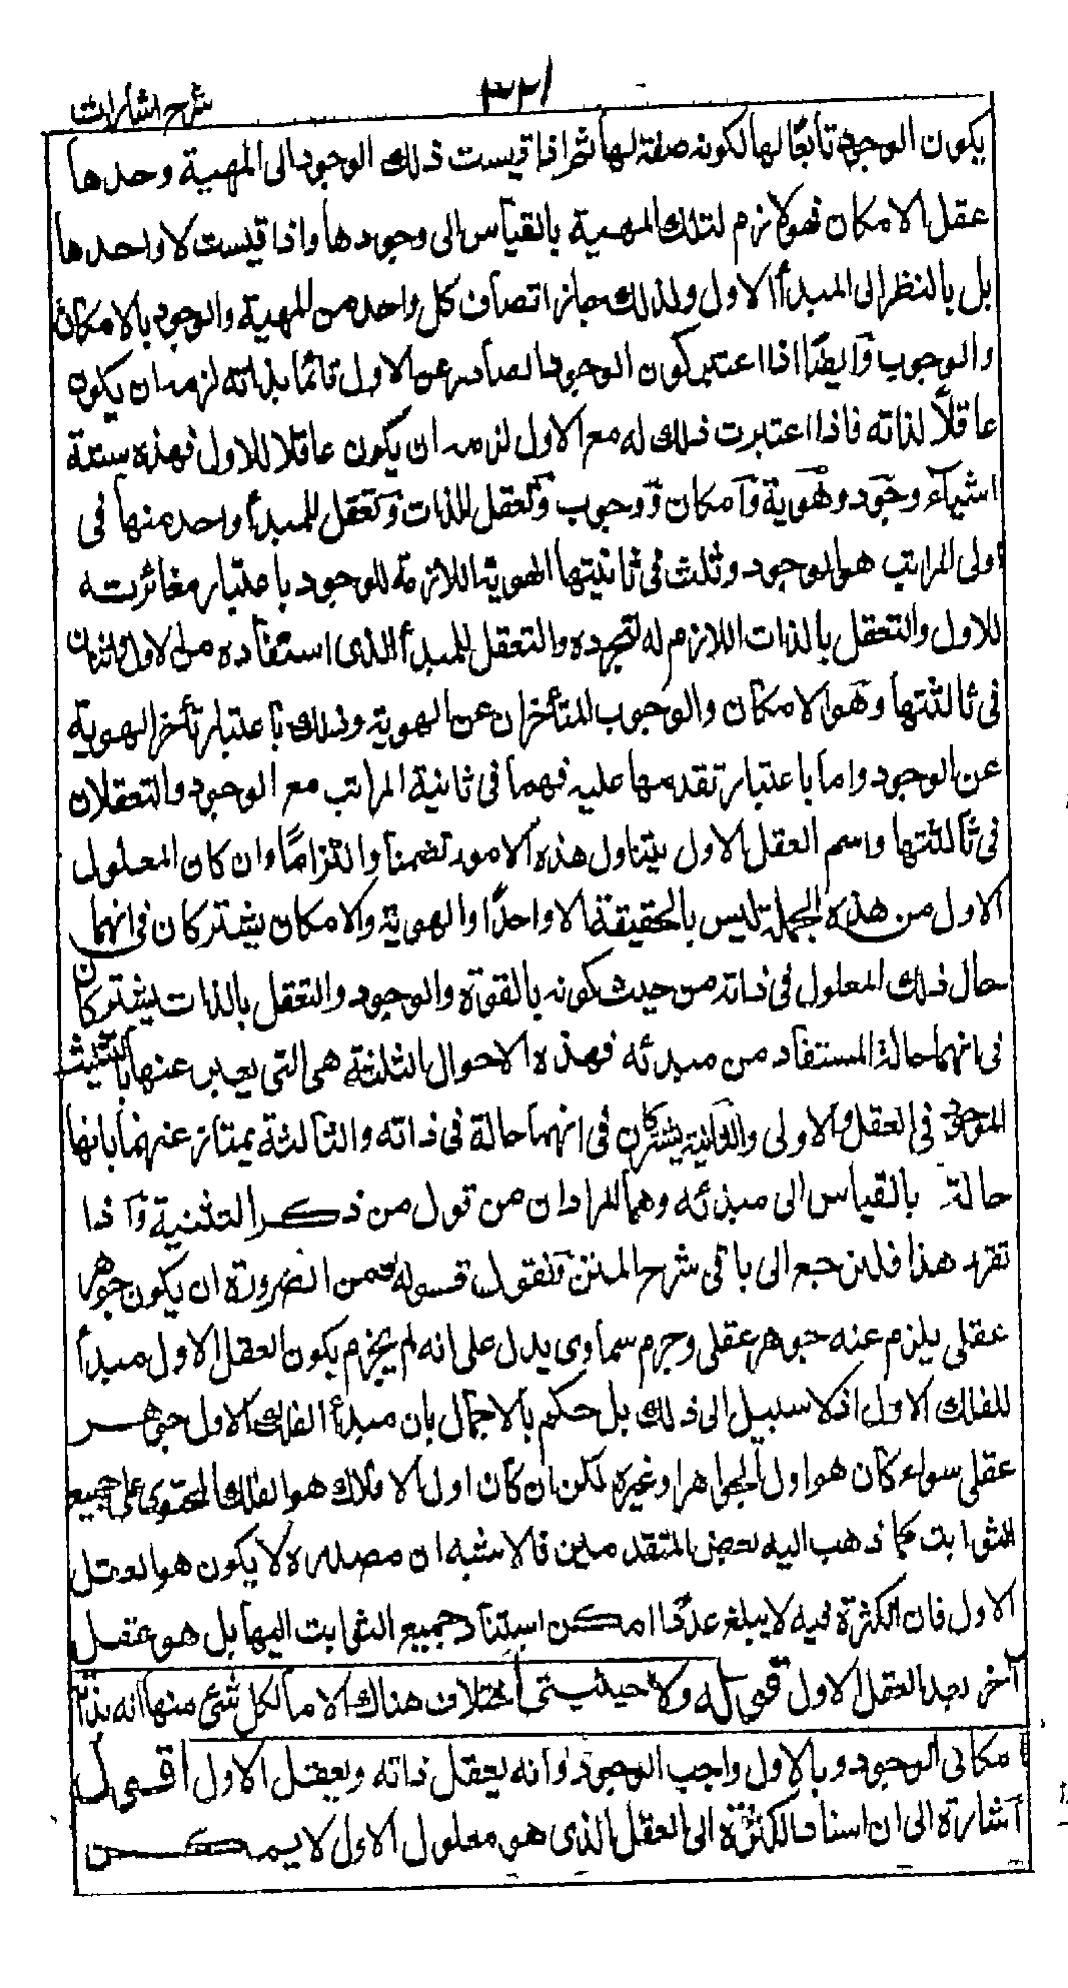 شرح اشارات
٣٢١
يكون الوجود تابعًا لها لكونه صفة لها ثم اذا قيست ذلك الوجود الى المهية وحدها
عقل الامكان فهو لازم لتلك المهية بالقياس الى وجودها واذا قيست لا واحدها
بل بالنظر الى المبدأ الاول ولذلك جاز اتصاف كل واحد من المهية والوجود بالامكان
والوجوب وايضًا اذا اعتبر كون الوجود الصادر عن الاول قائما بذاته لزمه ان يكون
عاقلاً لذاته فاذا اعتبرت ذلك له مع الاول لزمه ان يكون عاقلا للاول فهذه ستة
اشياء وجود وهوية وامكان ووجوب وتعقل للذات وتعقل للمبدأ واحد منها فى
اولى المراتب هو الوجود وثلث فى ثانيتها الهوية اللازمة للوجود باعتبار مغائرته
للاول والتعقل بالذات اللازم له لتجرده والتعقل للمبدأ الذى استفاده من الاول واثنان
فى ثالثتها وهو الامكان والوجوب المتأخران عن الهوية وذلك باعتبار تأخر الهوية
عن الوجود واما باعتبار تقدمها عليه فهما فى ثانية المراتب مع الوجود والتعقلان
فى ثالثتها واسم العقل الاول يتناول هذه الامور تضمنا والتزامًا وان كان المعلول
الاول من هذه الجملة ليس بالحقيقة الا واحدًا والهوية والامكان يشتركان فى انهما
حال ذلك المعلول فى ذاته من حيث كونه بالقوة والوجود والتعقل بالذات يشتركان
فى انهما حالة المستفاد من مبدئه فهذه الاحوال الثلثة هى التى يعبر عنها بالتثليث
الموجود فى العقل والاولى والثانية يشتركان فى انهما حالة فى ذاته والثالثة يمتاز عنهما بانها
حالة بالقياس الى مبدئه وهما المرادان من قول من ذكر التثنية واذا
تقرر هذا فلنرجع الى باقى شرح المتن ونقول قوله فمن الضرورة ان يكون جوهر
عقلى يلزم عنه جوهر عقلى وجرم سماوى يدل على انه لم يجزم بكون العقل الاول مبدأ
للفلك الاول اذ لا سبيل الى ذلك بل حكم بالاجمال بان مبدأ الفلك الاول جوهر
عقلى سواء كان هو اول الجواهر او غيره لكن ان كان اول الافلاك هو الفلك المحتوى على جميع
الثوابت كما ذهب اليه بعض المتقدمين فالاشبه ان مصدره لا يكون هو العقل
الاول فان الكثرة فيه لا يبلغ عددا امكن استناد جميع الثوابت اليها بل هو عقل
آخر بعد العقل الاول قوله ولا حيثيتى اختلاف هناك الا ما لكل شئ منها انه بذاته
امكانى الوجود وبالاول واجب الوجود وانه يعقل ذاته ويعقل الاول اقول
اشارة الى ان اسناد الكثرة الى العقل الذى هو معلول الاول لا يمكن